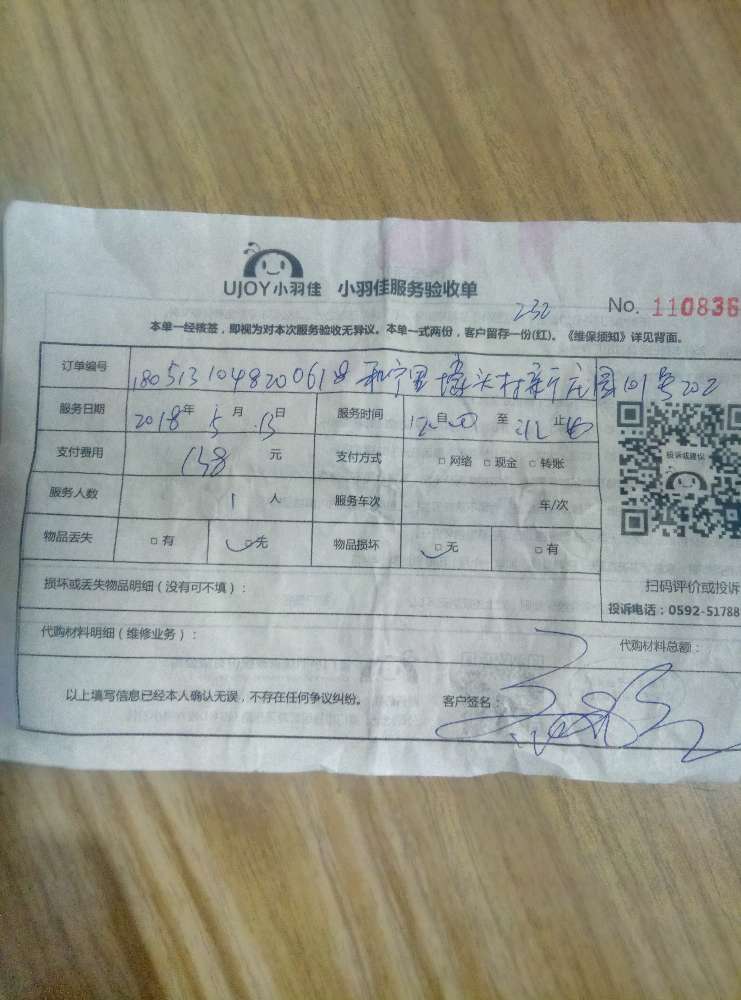 UJOY小羽佳 小羽佳服务验收单
No. 110836
232
本单一经核签，即视为对本次服务验收无异议。本单一式两份，客户留存一份(红)。《维保须知》详见背面。
订单编号 180513104820061
服务日期 2018年 5月 13日 服务时间 自 至 止
支付费用 138 元 支付方式 □网络 □现金 □转账
投诉或建议
服务人数 1 人 服务车次 车/次
物品丢失 □有 □无 物品损坏 □无 □有
损坏或丢失物品明细（没有可不填）：
扫码评价或投诉
投诉电话：0592-51788
代购材料明细（维修业务）：
代购材料总额：
以上填写信息已经本人确认无误，不存在任何争议纠纷。 客户签名：